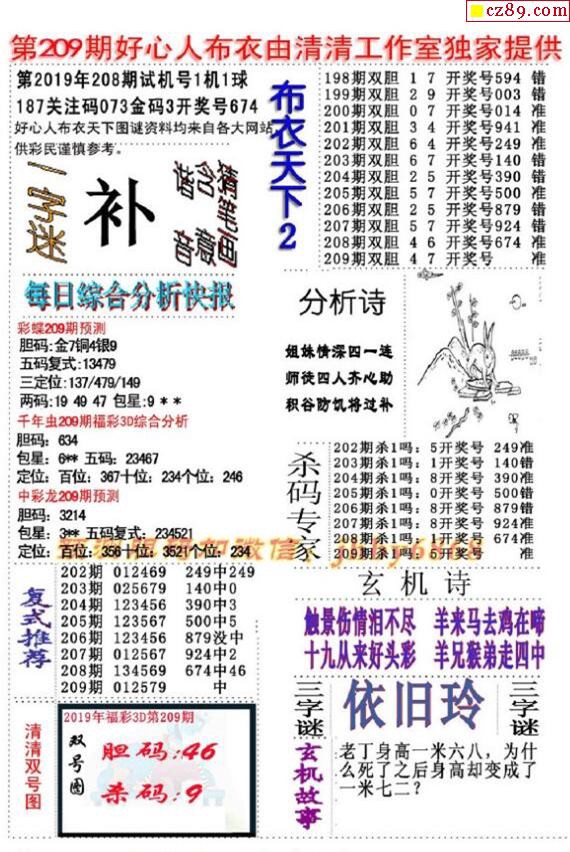 cz89.com
第209期好心人布衣由清清工作室独家提供
第2019年208期试机号1机1球
187关注码073金码3开奖号674
好心人布衣天下图谜资料均来自各大网站,
供彩民谨慎参考。
一字迷
补
猜谜画
含意
谐音
布衣天下2
198期双胆 1 7 开奖号594 错
199期双胆 2 9 开奖号003 错
200期双胆 0 7 开奖号014 准
201期双胆 3 4 开奖号941 准
202期双胆 6 4 开奖号249 准
203期双胆 6 7 开奖号140 错
204期双胆 2 5 开奖号390 错
205期双胆 5 7 开奖号500 准
206期双胆 2 5 开奖号879 错
207期双胆 5 7 开奖号924 错
208期双胆 4 6 开奖号674 准
209期双胆 4 7 开奖号 准
每日综合分析快报
彩蝶209期预测
胆码:金7铜4银9
五码复式:13479
三定位:137/479/149
两码:19 49 47 包星:9 * *
千年虫209期福彩3D综合分析
胆码: 634
包星: 6** 五码: 23467
定位: 百位: 367十位: 234个位: 246
中彩龙209期预测
胆码: 3214
包星: 3** 五码复式: 234521
定位: 百位: 356十位: 3521个位: 234
分析诗
姐妹情深四一连
师徒四人齐心助
积谷防饥将过补
杀码专家
202期杀1吗: 5开奖号 249准
203期杀1吗: 1开奖号 140错
204期杀1吗: 8开奖号 390准
205期杀1吗: 0开奖号 500错
206期杀1吗: 8开奖号 879错
207期杀1吗: 8开奖号 924准
208期杀1吗: 8开奖号 674准
209期杀1吗: 5开奖号 准
复式推荐
202期 012469 249中249
203期 025679 140中0
204期 123456 390中3
205期 123567 500中5
206期 123456 879没中
207期 012567 924中2
208期 134569 674中46
209期 012579 中
玄机诗
触景伤情泪不尽 羊来马去鸡在啼
十九从来好头彩 羊兄猴弟走四中
清清双号图
2019年福彩3D第209期
双号图
胆码:46
杀码:9
三字谜
依旧玲
三字谜
玄机故事
老丁身高一米六八，为什
么死了之后身高却变成了
一米七二？